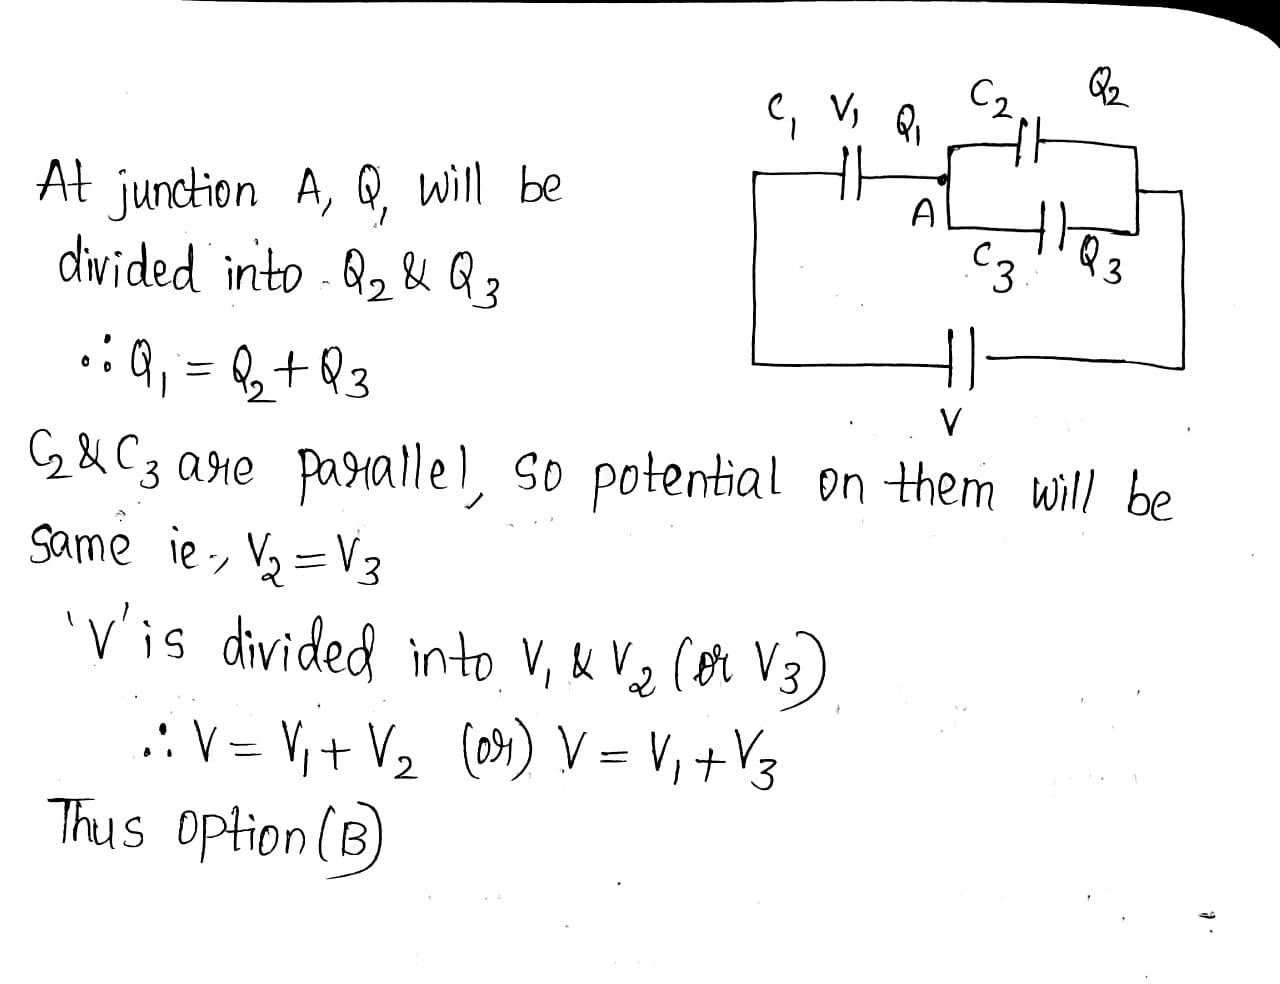 C₁ V₁ Q₁ C₂ Q₂
At junction A, Q₁ will be
A
divided into Q₂ & Q₃
C₃ Q₃
∴ Q₁ = Q₂ + Q₃
V
C₂ & C₃ are parallel, so potential on them will be
same ie., V₂ = V₃
'V' is divided into V₁ & V₂ (or V₃)
∴ V = V₁ + V₂ (or) V = V₁ + V₃
Thus option (B)